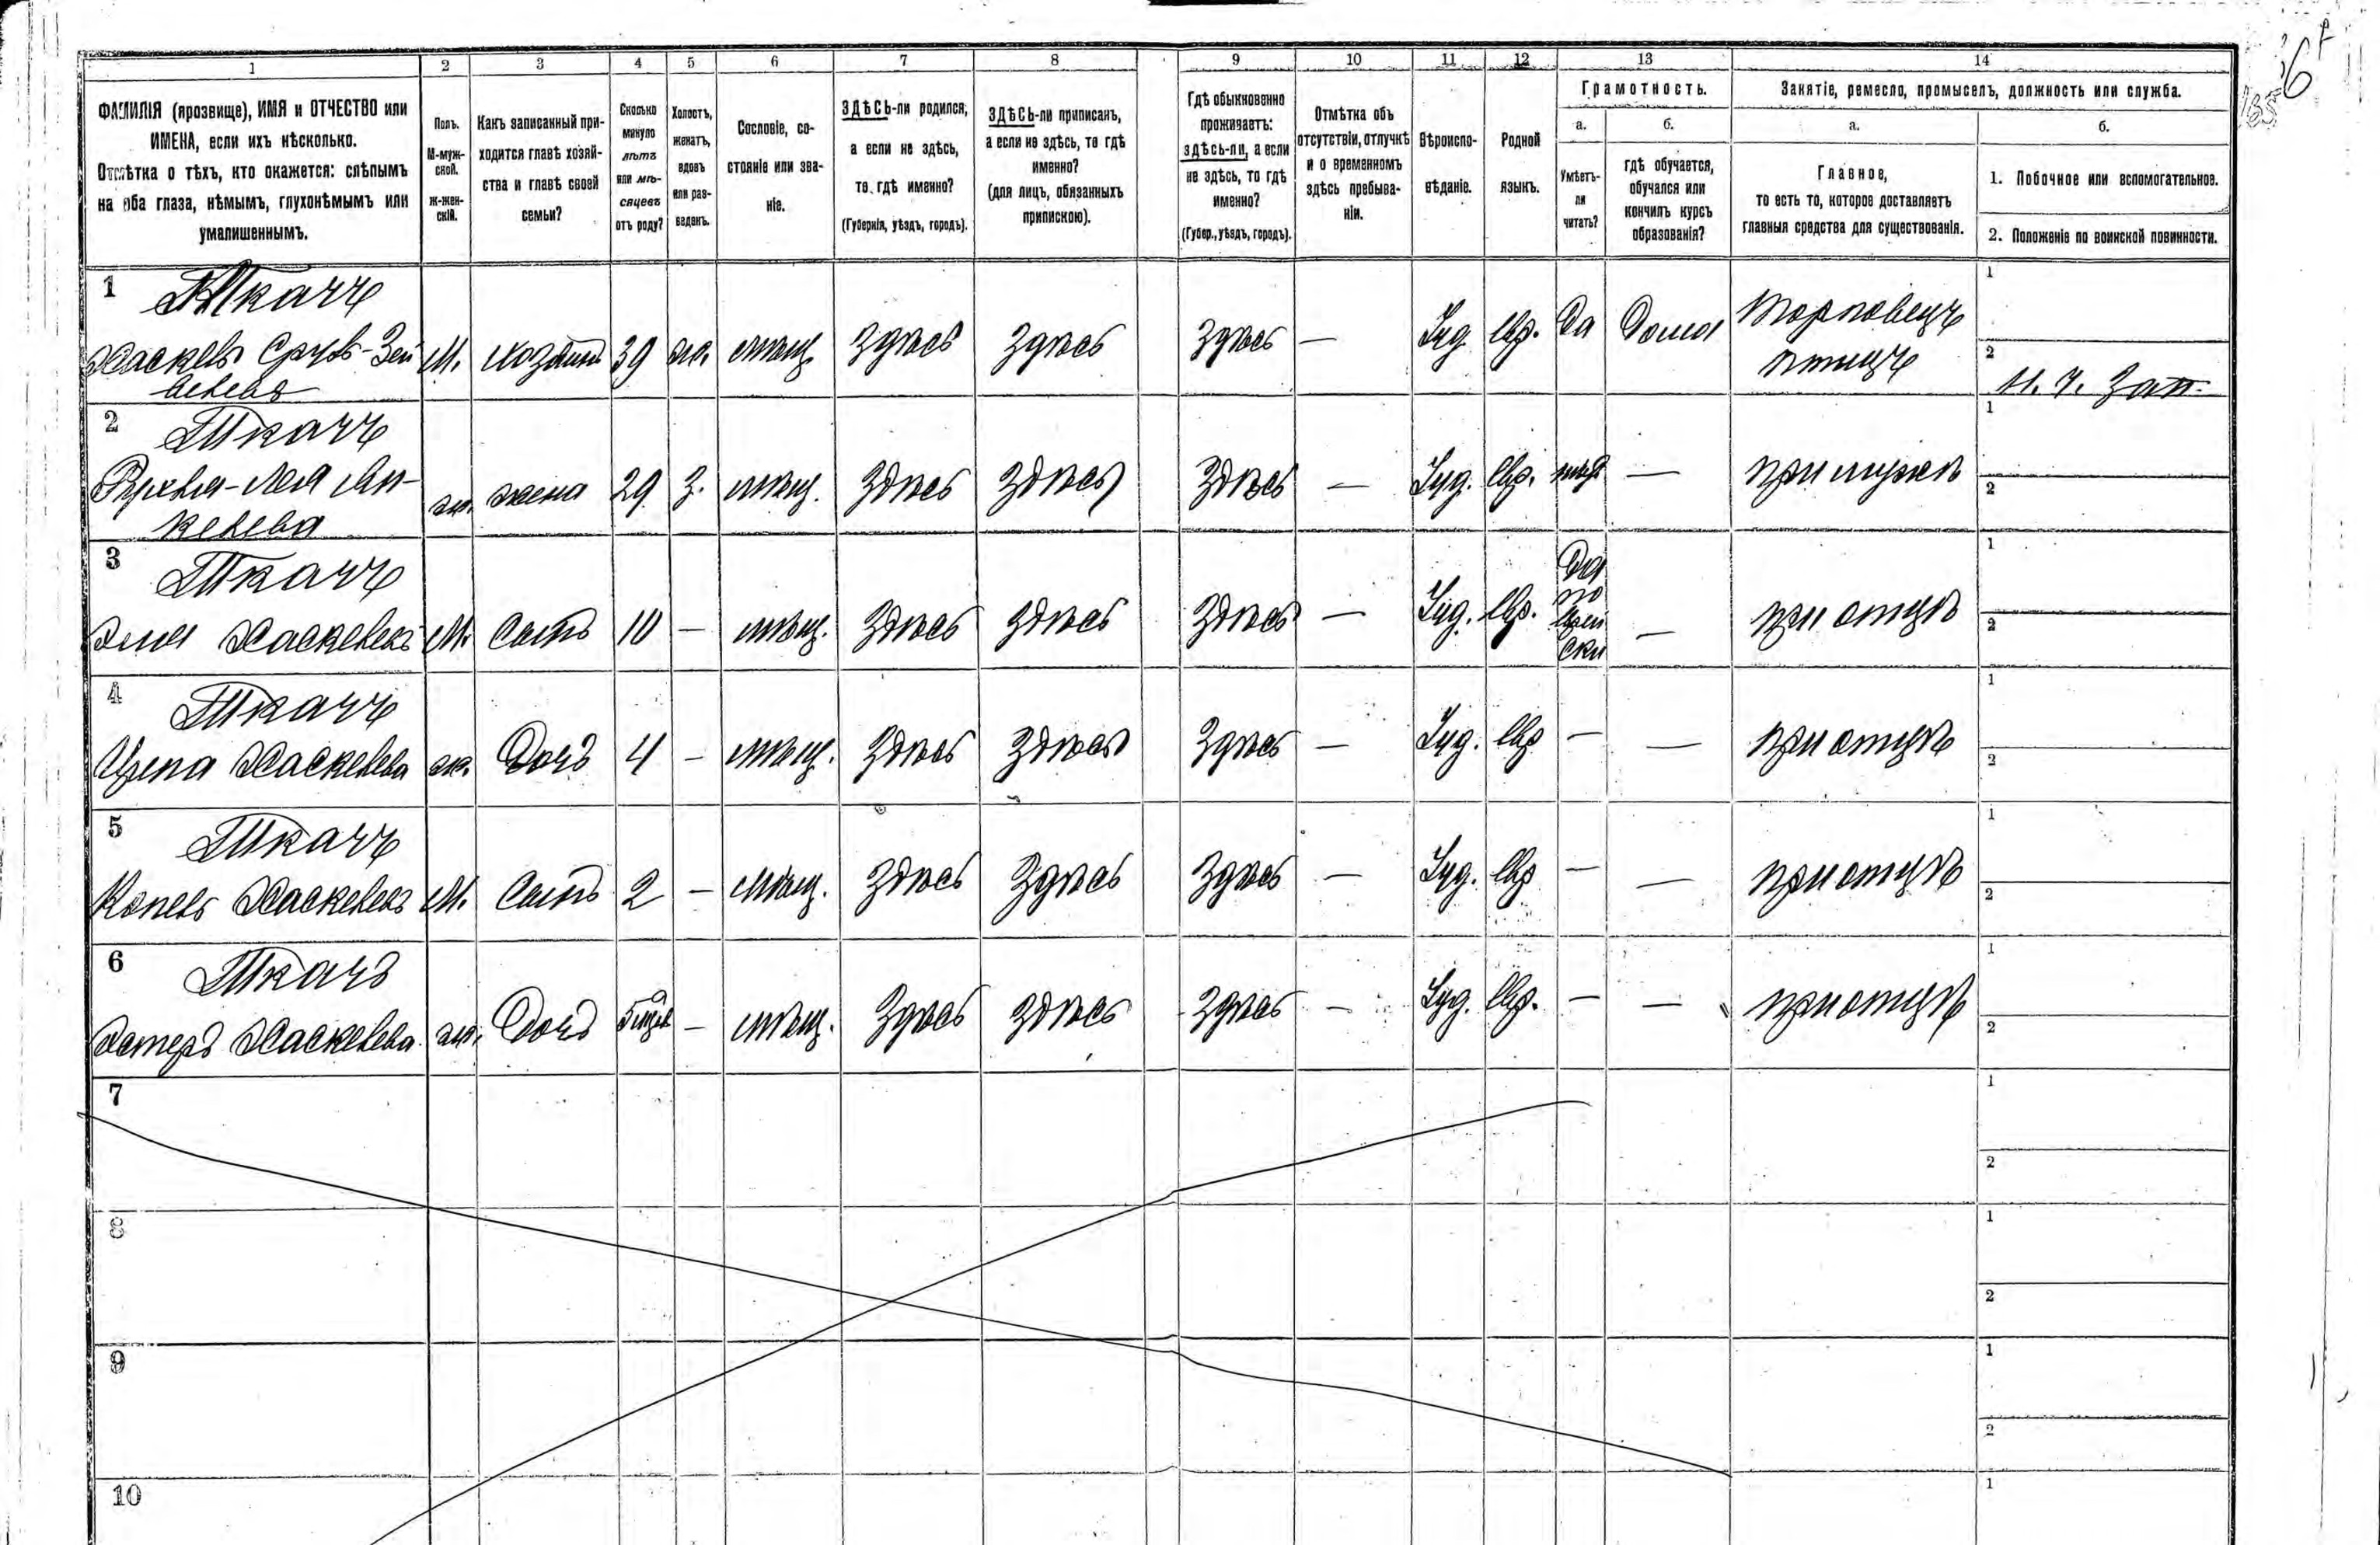 1 2 3 4 5 6 7 8 9 10 11 12 13 14
ФАМИЛІЯ (прозвище), ИМЯ и ОТЧЕСТВО или
ИМЕНА, если ихъ нѣсколько.
Отмѣтка о тѣхъ, кто окажется: слѣпымъ
на оба глаза, нѣмымъ, глухонѣмымъ или
умалишеннымъ.
Полъ.
М-муж-
ской.
Ж-жен-
скій.
Какъ записанный при-
ходится главѣ хозяй-
ства и главѣ своей
семьи?
Сколько
минуло
лѣтъ
или мѣ-
сяцевъ
отъ роду?
Холостъ,
женатъ,
вдовъ
или раз-
веденъ.
Сословіе, со-
стояніе или зва-
ніе.
ЗДѢСЬ-ли родился,
а если не здѣсь,
то гдѣ именно?
(Губернія, уѣздъ, городъ).
ЗДѢСЬ-ли приписанъ,
а если не здѣсь, то гдѣ
именно?
(для лицъ, обязанныхъ
припискою).
Гдѣ обыкновенно
проживаетъ:
здѣсь-ли, а если
не здѣсь, то гдѣ
именно?
(Губер., уѣздъ, городъ).
Отмѣтка объ
отсутствіи, отлучкѣ
и о временномъ
здѣсь пребыва-
ніи.
Вѣроиспо-
вѣданіе.
Родной
языкъ.
Грамотность.
а.
Умѣетъ-
ли
читать?
б.
гдѣ обучается,
обучался или
кончилъ курсъ
образованія?
Занятіе, ремесло, промыселъ, должность или служба.
а.
Главное,
то есть то, которое доставляетъ
главныя средства для существованія.
б.
1. Побочное или вспомогательное.
2. Положеніе по воинской повинности.
1 Ткачъ
Хаскель Сруль-Зей
М. хозяинъ 39 ж. мѣщ. здѣсь здѣсь здѣсь — Іуд. Евр. да дома Торговецъ
птицъ
1
2
2 Ткачъ
ж. жена 29 З. мѣщ. здѣсь здѣсь здѣсь — Іуд. Евр. — при мужѣ
1
2
3 Ткачъ
Хаскелевъ М. сынъ 10 — мѣщ. здѣсь здѣсь здѣсь — Іуд. Евр. да
по
— при отцѣ
1
2
4 Ткачъ
Хаскелева ж. дочь 4 — мѣщ. здѣсь здѣсь здѣсь — Іуд. Евр — — при отцѣ
1
2
5 Ткачъ
Копель Хаскелевъ М. сынъ 2 — мѣщ. здѣсь здѣсь здѣсь — Іуд. Евр — — при отцѣ
1
2
6 Ткачъ
Эстеръ Хаскелева ж. дочь 5 — мѣщ. здѣсь здѣсь здѣсь — Іуд. Евр. — — при отцѣ
1
2
7
1
2
8
1
2
9
1
2
10
1